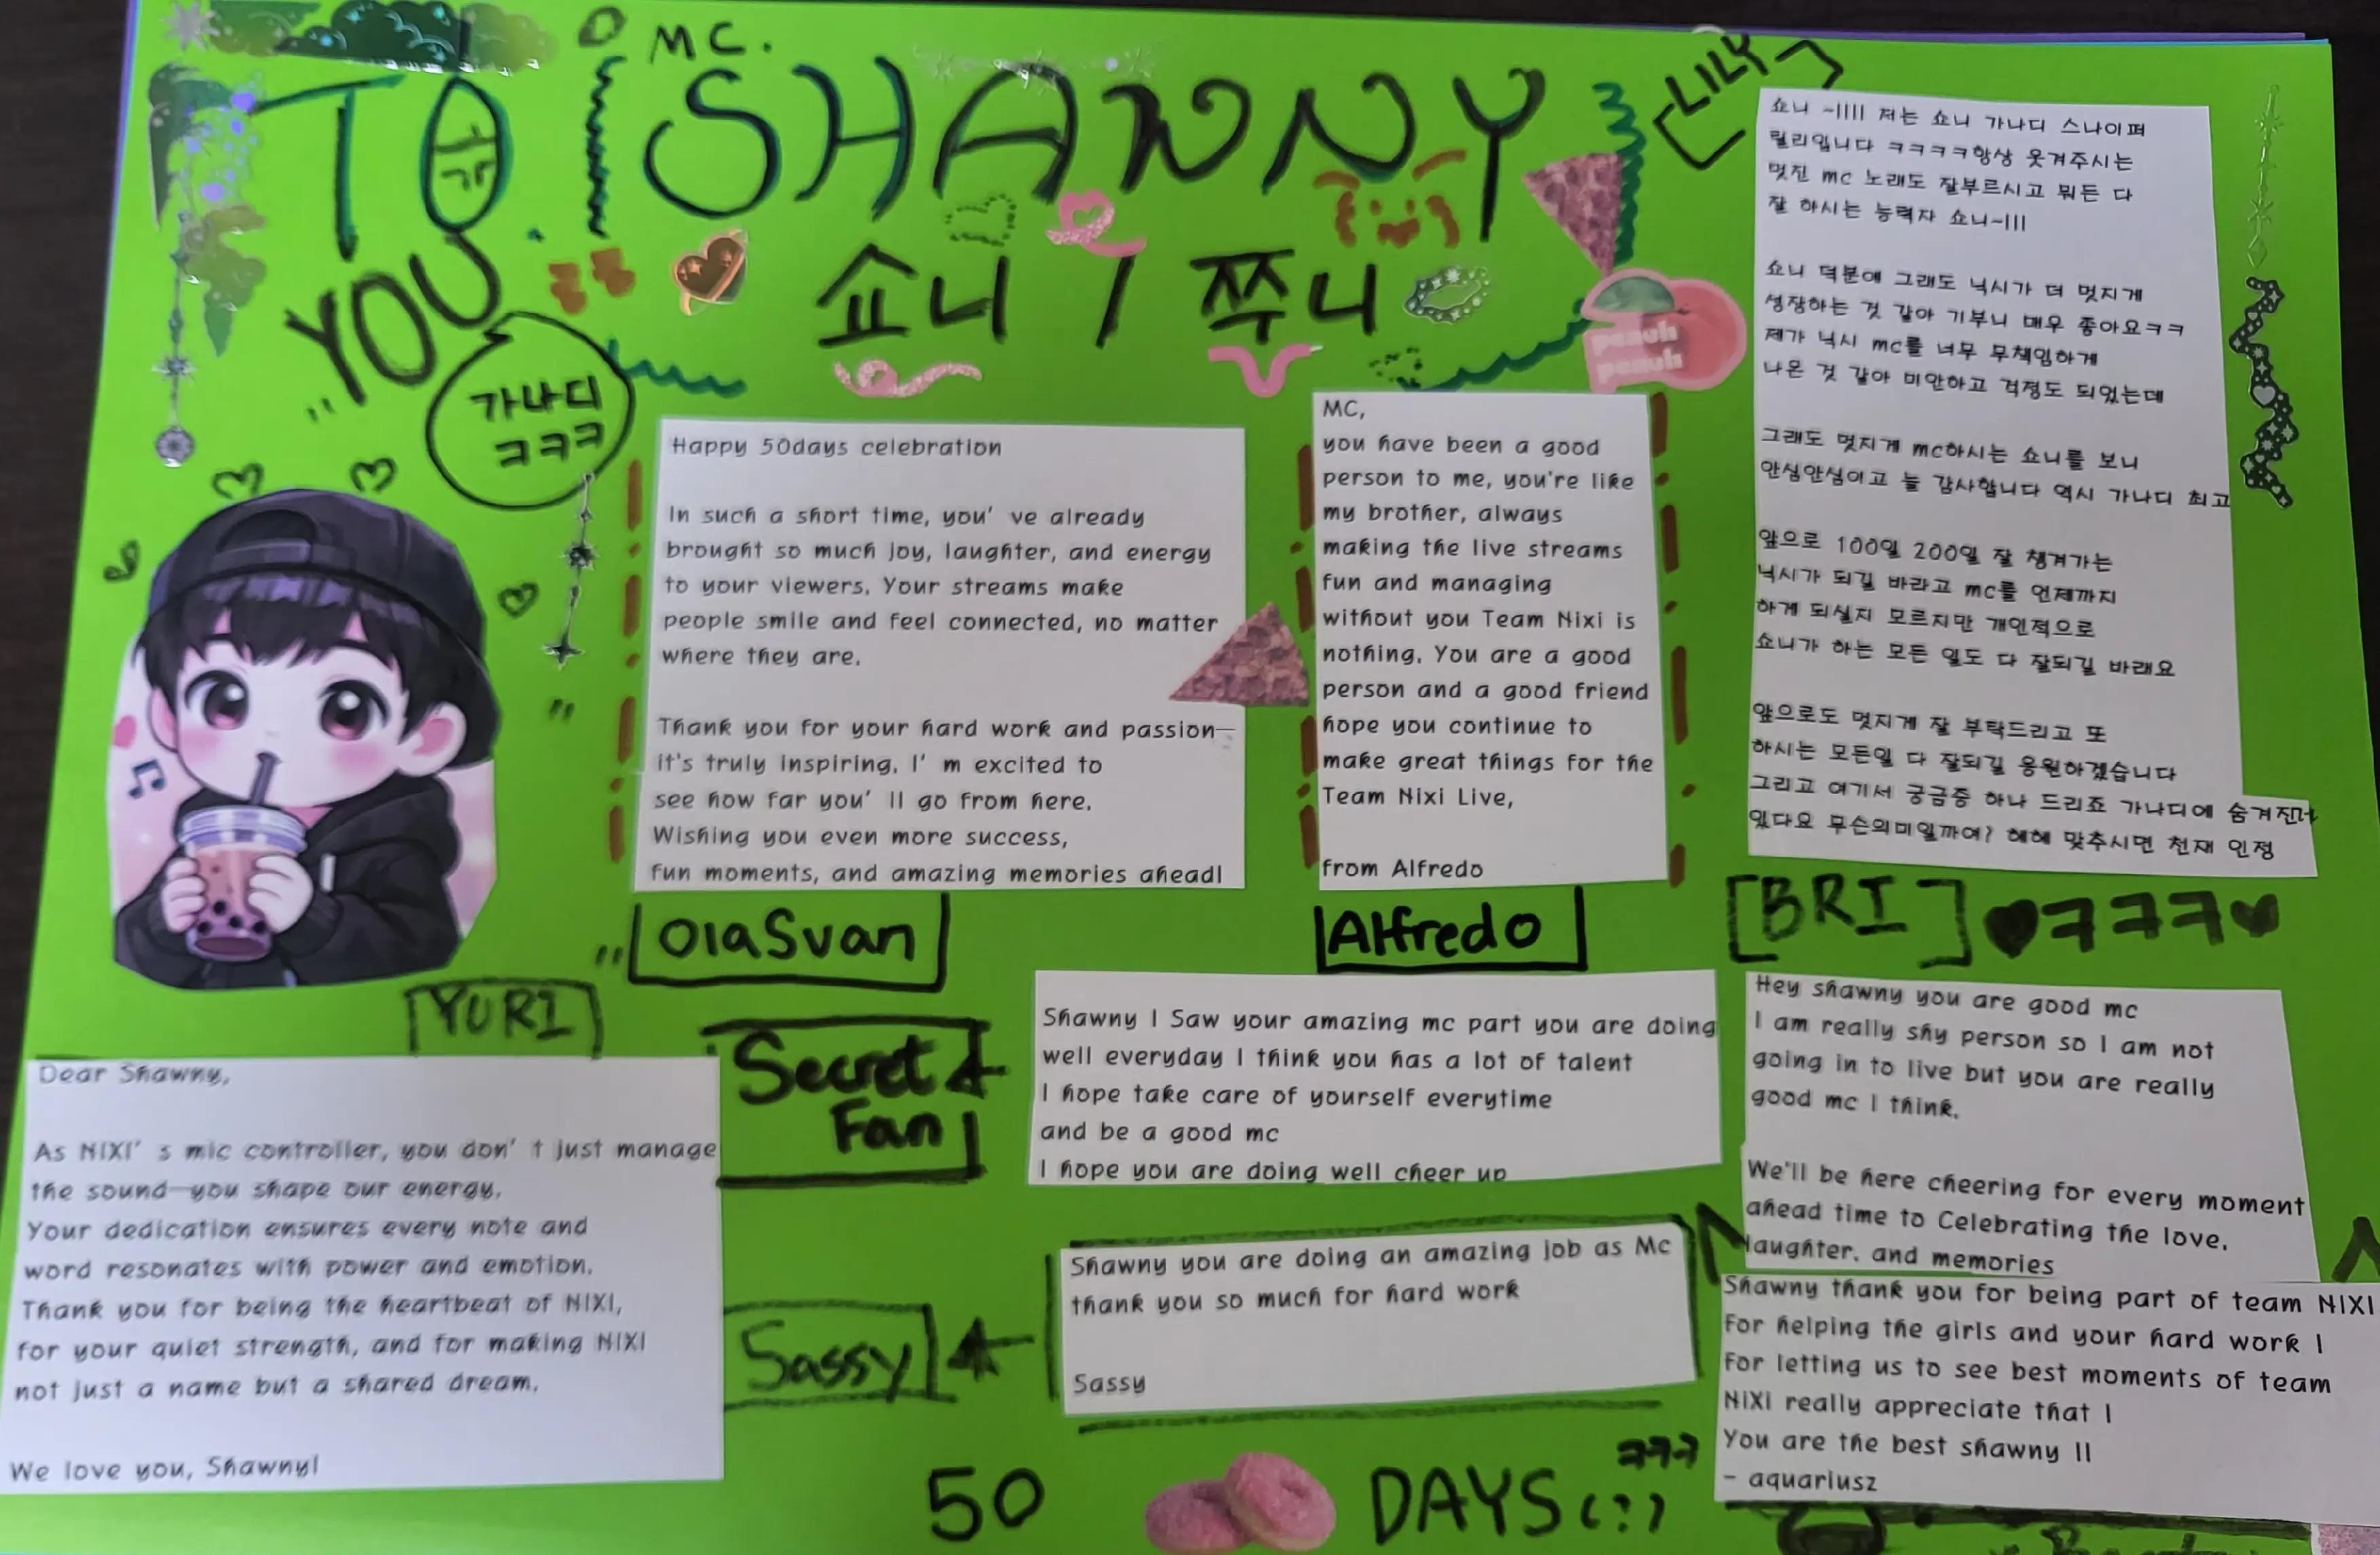 MC.
TO. SHAWNY
YOU
쇼니 / 쭈니
가나디
ㅋㅋㅋ
peach
peach
[LILY]
쇼니 ~!!!! 저는 쇼니 가나디 스나이퍼
릴리입니다 ㅋㅋㅋㅋ항상 웃겨주시는
멋진 mc 노래도 잘부르시고 뭐든 다
잘 하시는 능력자 쇼니~!!!
쇼니 덕분에 그래도 닉시가 더 멋지게
성장하는 것 같아 기부니 매우 좋아요ㅋㅋ
제가 닉시 mc를 너무 무책임하게
나온 것 같아 미안하고 걱정도 되었는데
그래도 멋지게 mc하시는 쇼니를 보니
안심안심이고 늘 감사합니다 역시 가나디 최고
앞으로 100일 200일 잘 챙겨가는
닉시가 되길 바라고 mc를 언제까지
하게 되실지 모르지만 개인적으로
쇼니가 하는 모든 일도 다 잘되길 바래요
앞으로도 멋지게 잘 부탁드리고 또
하시는 모든일 다 잘되길 응원하겠습니다
그리고 여기서 궁금증 하나 드리죠 가나디에 숨겨진거
있다요 무슨의미일까여? 헤헤 맞추시면 천재 인정
Happy 50days celebration
In such a short time, you' ve already
brought so much joy, laughter, and energy
to your viewers. Your streams make
people smile and feel connected, no matter
where they are.
Thank you for your hard work and passion—
it's truly inspiring. I' m excited to
see how far you' ll go from here.
Wishing you even more success,
fun moments, and amazing memories ahead!
OlaSvan
MC,
you have been a good
person to me, you're like
my brother, always
making the live streams
fun and managing
without you Team Nixi is
nothing. You are a good
person and a good friend
hope you continue to
make great things for the
Team Nixi Live,
from Alfredo
Alfredo
[BRI] ♥ㅋㅋㅋ♥
Hey shawny you are good mc
I am really shy person so I am not
going in to live but you are really
good mc I think.
We'll be here cheering for every moment
ahead time to Celebrating the love,
laughter, and memories
[YURI]
Dear Shawny,
As NIXI' s mic controller, you don' t just manage
the sound—you shape our energy.
Your dedication ensures every note and
word resonates with power and emotion.
Thank you for being the heartbeat of NIXI,
for your quiet strength, and for making NIXI
not just a name but a shared dream.
We love you, Shawny!
Secret
Fan
Shawny I Saw your amazing mc part you are doing
well everyday I think you has a lot of talent
I hope take care of yourself everytime
and be a good mc
I hope you are doing well cheer up
Sassy
Shawny you are doing an amazing job as Mc
thank you so much for hard work
Sassy
Shawny thank you for being part of team NIXI
For helping the girls and your hard work !
For letting us to see best moments of team
NiXI really appreciate that !
You are the best shawny !!
- aquariusz
50 DAYS(?) ㅋㅋㅋ